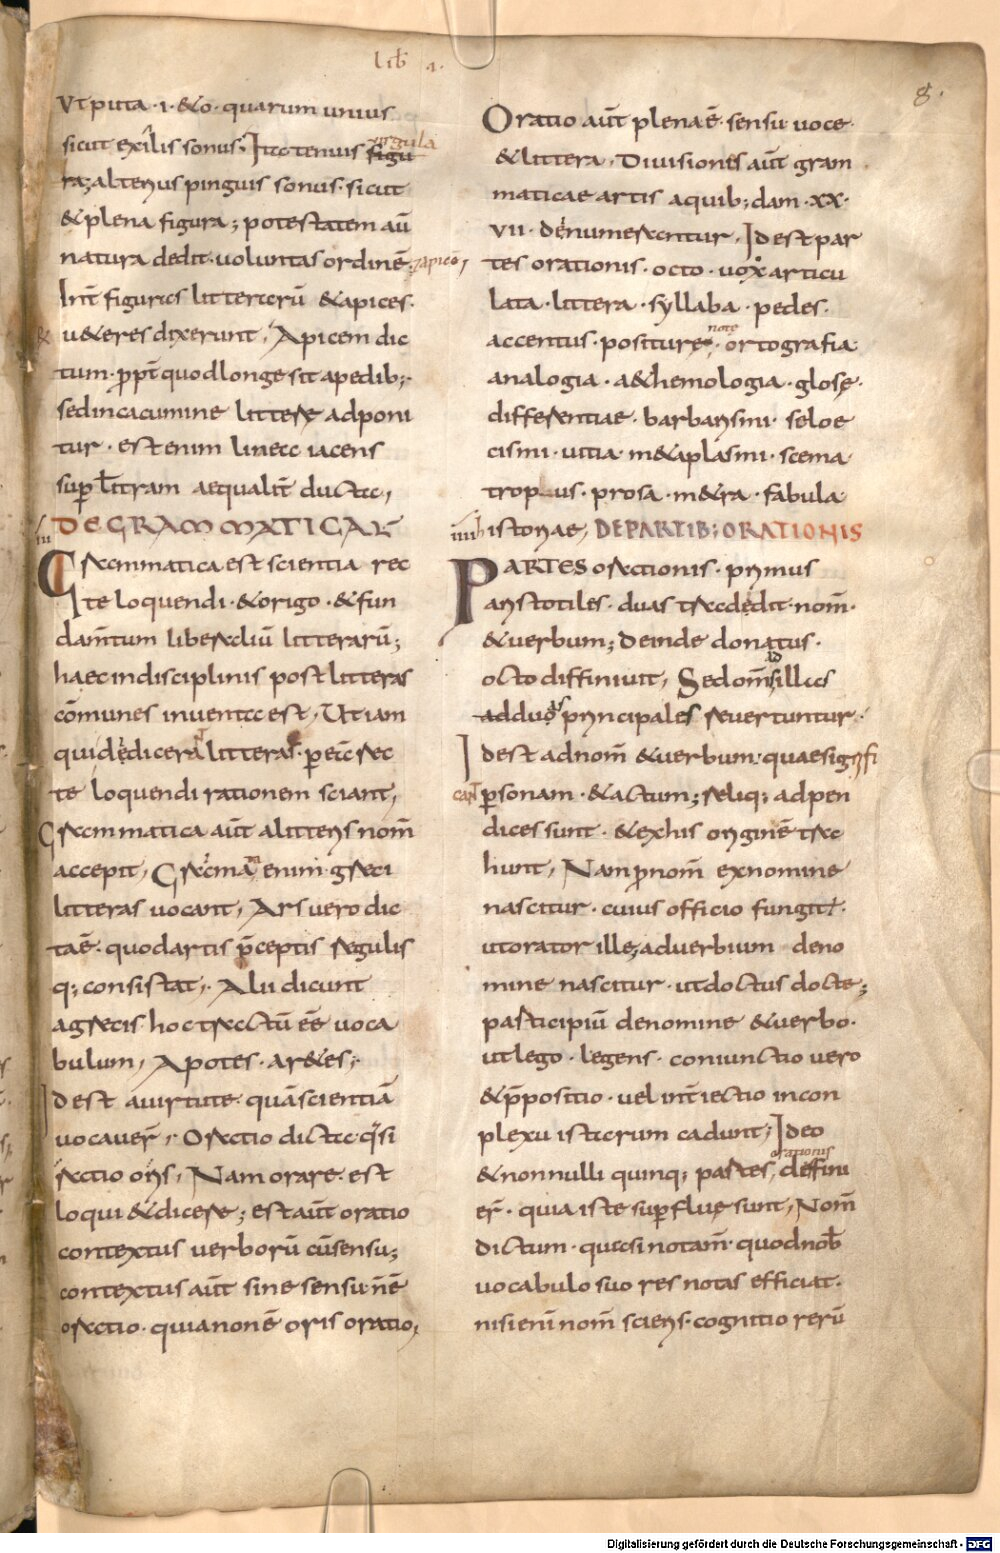 lib̄ 1.
8.
Ut puta · i · & o · quarum unius
sicut exilis sonus · Ita tenuis figu
virgula
ra; alterius pinguis sonus · sicut
& plena figura; potestatem aū
natura dedit · uoluntas ordinē; &apicē;
Int̄ figuras litterarū & apices ·
& u&eres dixerunt, Apicem dic
tum · ꝓpt̄ quod longe sit a pedib;
sed in cacumine litterę adponi
tur · est enim linea iacens
sup̄ litt̄ram aequalit̄ ducta,
iii DE GRAMMATICA
Grammatica est scientia rec
te loquendi · & origo · & fun
dam̄tum liberaliū litterarū;
haec in disciplinis post litteras
cōmunes inuenta est, Ut iam
qui didicerant litteras · p̄ eā rec
te loquendi rationem sciant,
Grammatica aūt a litteris nom̄
accepit, Gramma enim greci
litteras uocant, Ars uero dic
ta ē · quod artis p̄ceptis regulis
q; consistat, Alii dicunt
a grecis hoc tractū eē uoca
bulum, Apotes · ar&es;
Id est a uirtute · quā scientiā
uocauer̄, Oratio dicta q̄si
ratio oris, Nam orare · est
loqui & dicere; est aūt oratio
contextus uerborū cū sensu;
contextus aūt sine sensu n̄ ē
oratio · quia non ē oris oratio,
Oratio aūt plena ē · sensu uoce ·
& littera, Diuisiones aūt gram
maticae artis a quib;dam · XX ·
VII · denumerantur, Id est par
tes orationis · octo · uox articu
lata · littera · syllaba · pedes ·
accentus · positurę · note · ortografia
analogia · a&hemologia · glosę ·
differentiae · barbarismi · soloe
cismi · uitia · m&aplasmi · scema
trop us · prosa · m&ra · fabula
iiii historiae, DE PARTIB; ORATIONIS
PARTES orationis · primus
aristotiles · duas tradedit · nom̄ ·
& uerbum; deinde donatus ·
octo diffiniuit, Sed om̄s illas
ad duas principales reuertuntur ·
Id est ad nom̄ & uerbum · quae signifi
cant p̄sonam · & actum; reliq; adpen
dices sunt · & ex his originē tra
hunt, Nam p̄nom̄ ex nomine
nascitur · cuius officio fungit̄ ·
ut orator ille, aduerbium de no
mine nascitur · ut doctus docte;
participiū de nomine & uerbo ·
ut lego · legens · coniunctio uero
& p̄positio · uel int̄iectio in con
plexu istarum cadunt, Ideo
& nonnulli quinq; partes orationis deffini
er̄ · quia iste sup̄fluę sunt, Nom̄
dictum · quasi notam̄ · quod nob̄
uocabulo suo res notas efficiat ·
nisi eni nom̄ scieris · cognitio rerū
Digitalisierung gefördert durch die Deutsche Forschungsgemeinschaft - DFG